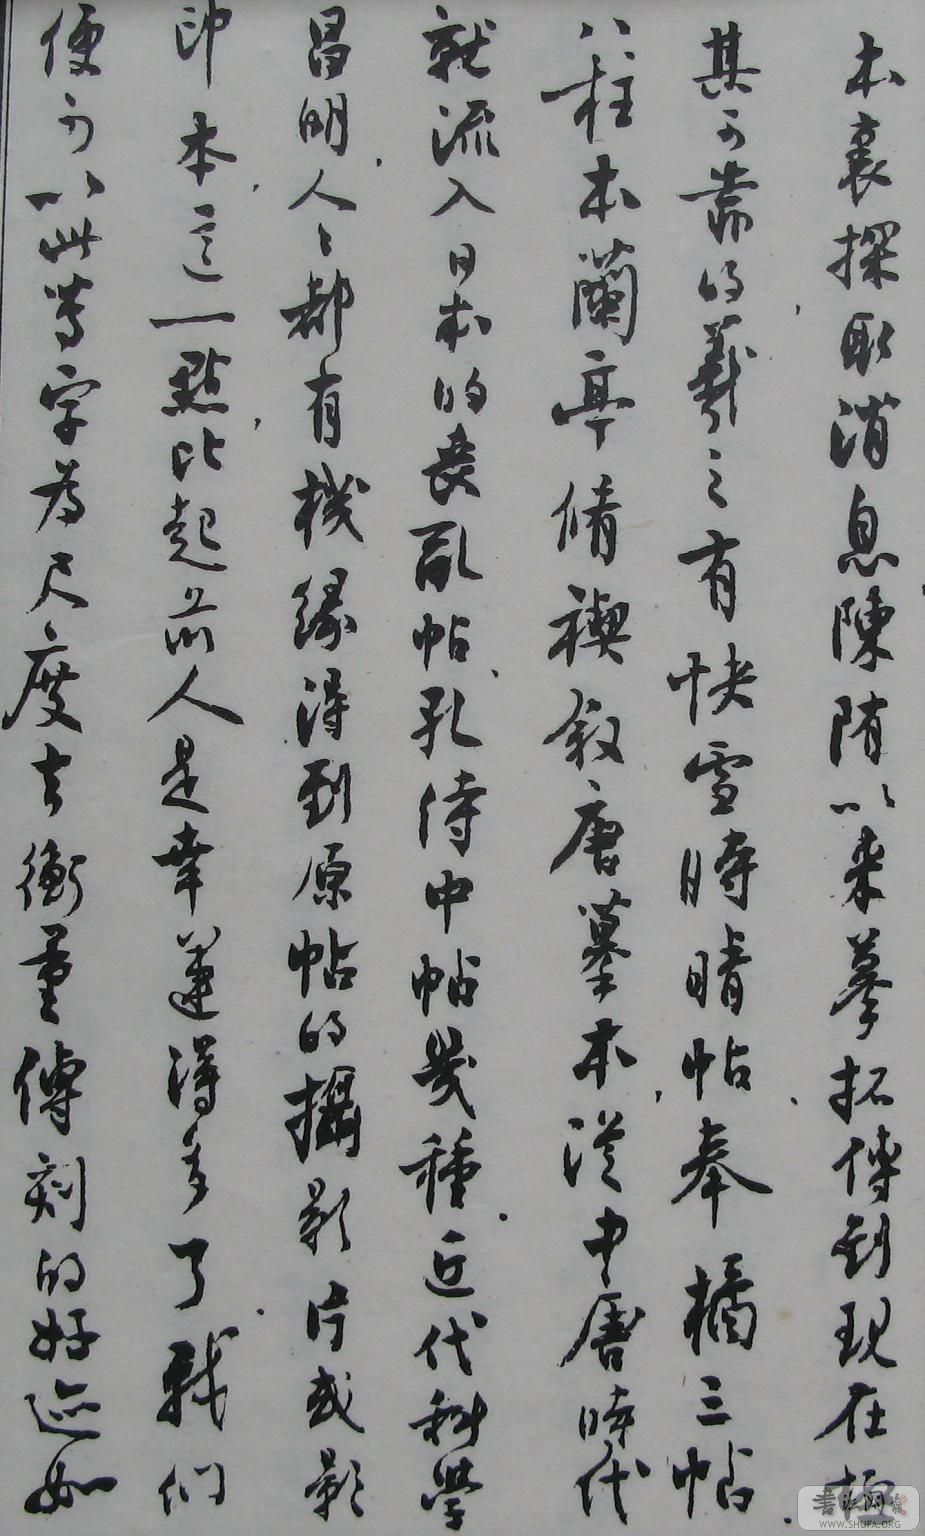 本裏探取消息陳隋以來摹拓傳到現在極
其可靠的羲之有快雪時晴帖奉橘三帖
八柱本蘭亭脩禊敘唐摹本從中唐時代
就流入日本的喪亂帖、孔侍中帖幾種.近代科學
昌明,人々都有機緣得到原帖的攝影片或影
印本,這一點,比起前人是幸運得多了.我們
便可以此等字為尺度去衡量傳刻的好迹如
書法網
WWW.SHUFA.ORG